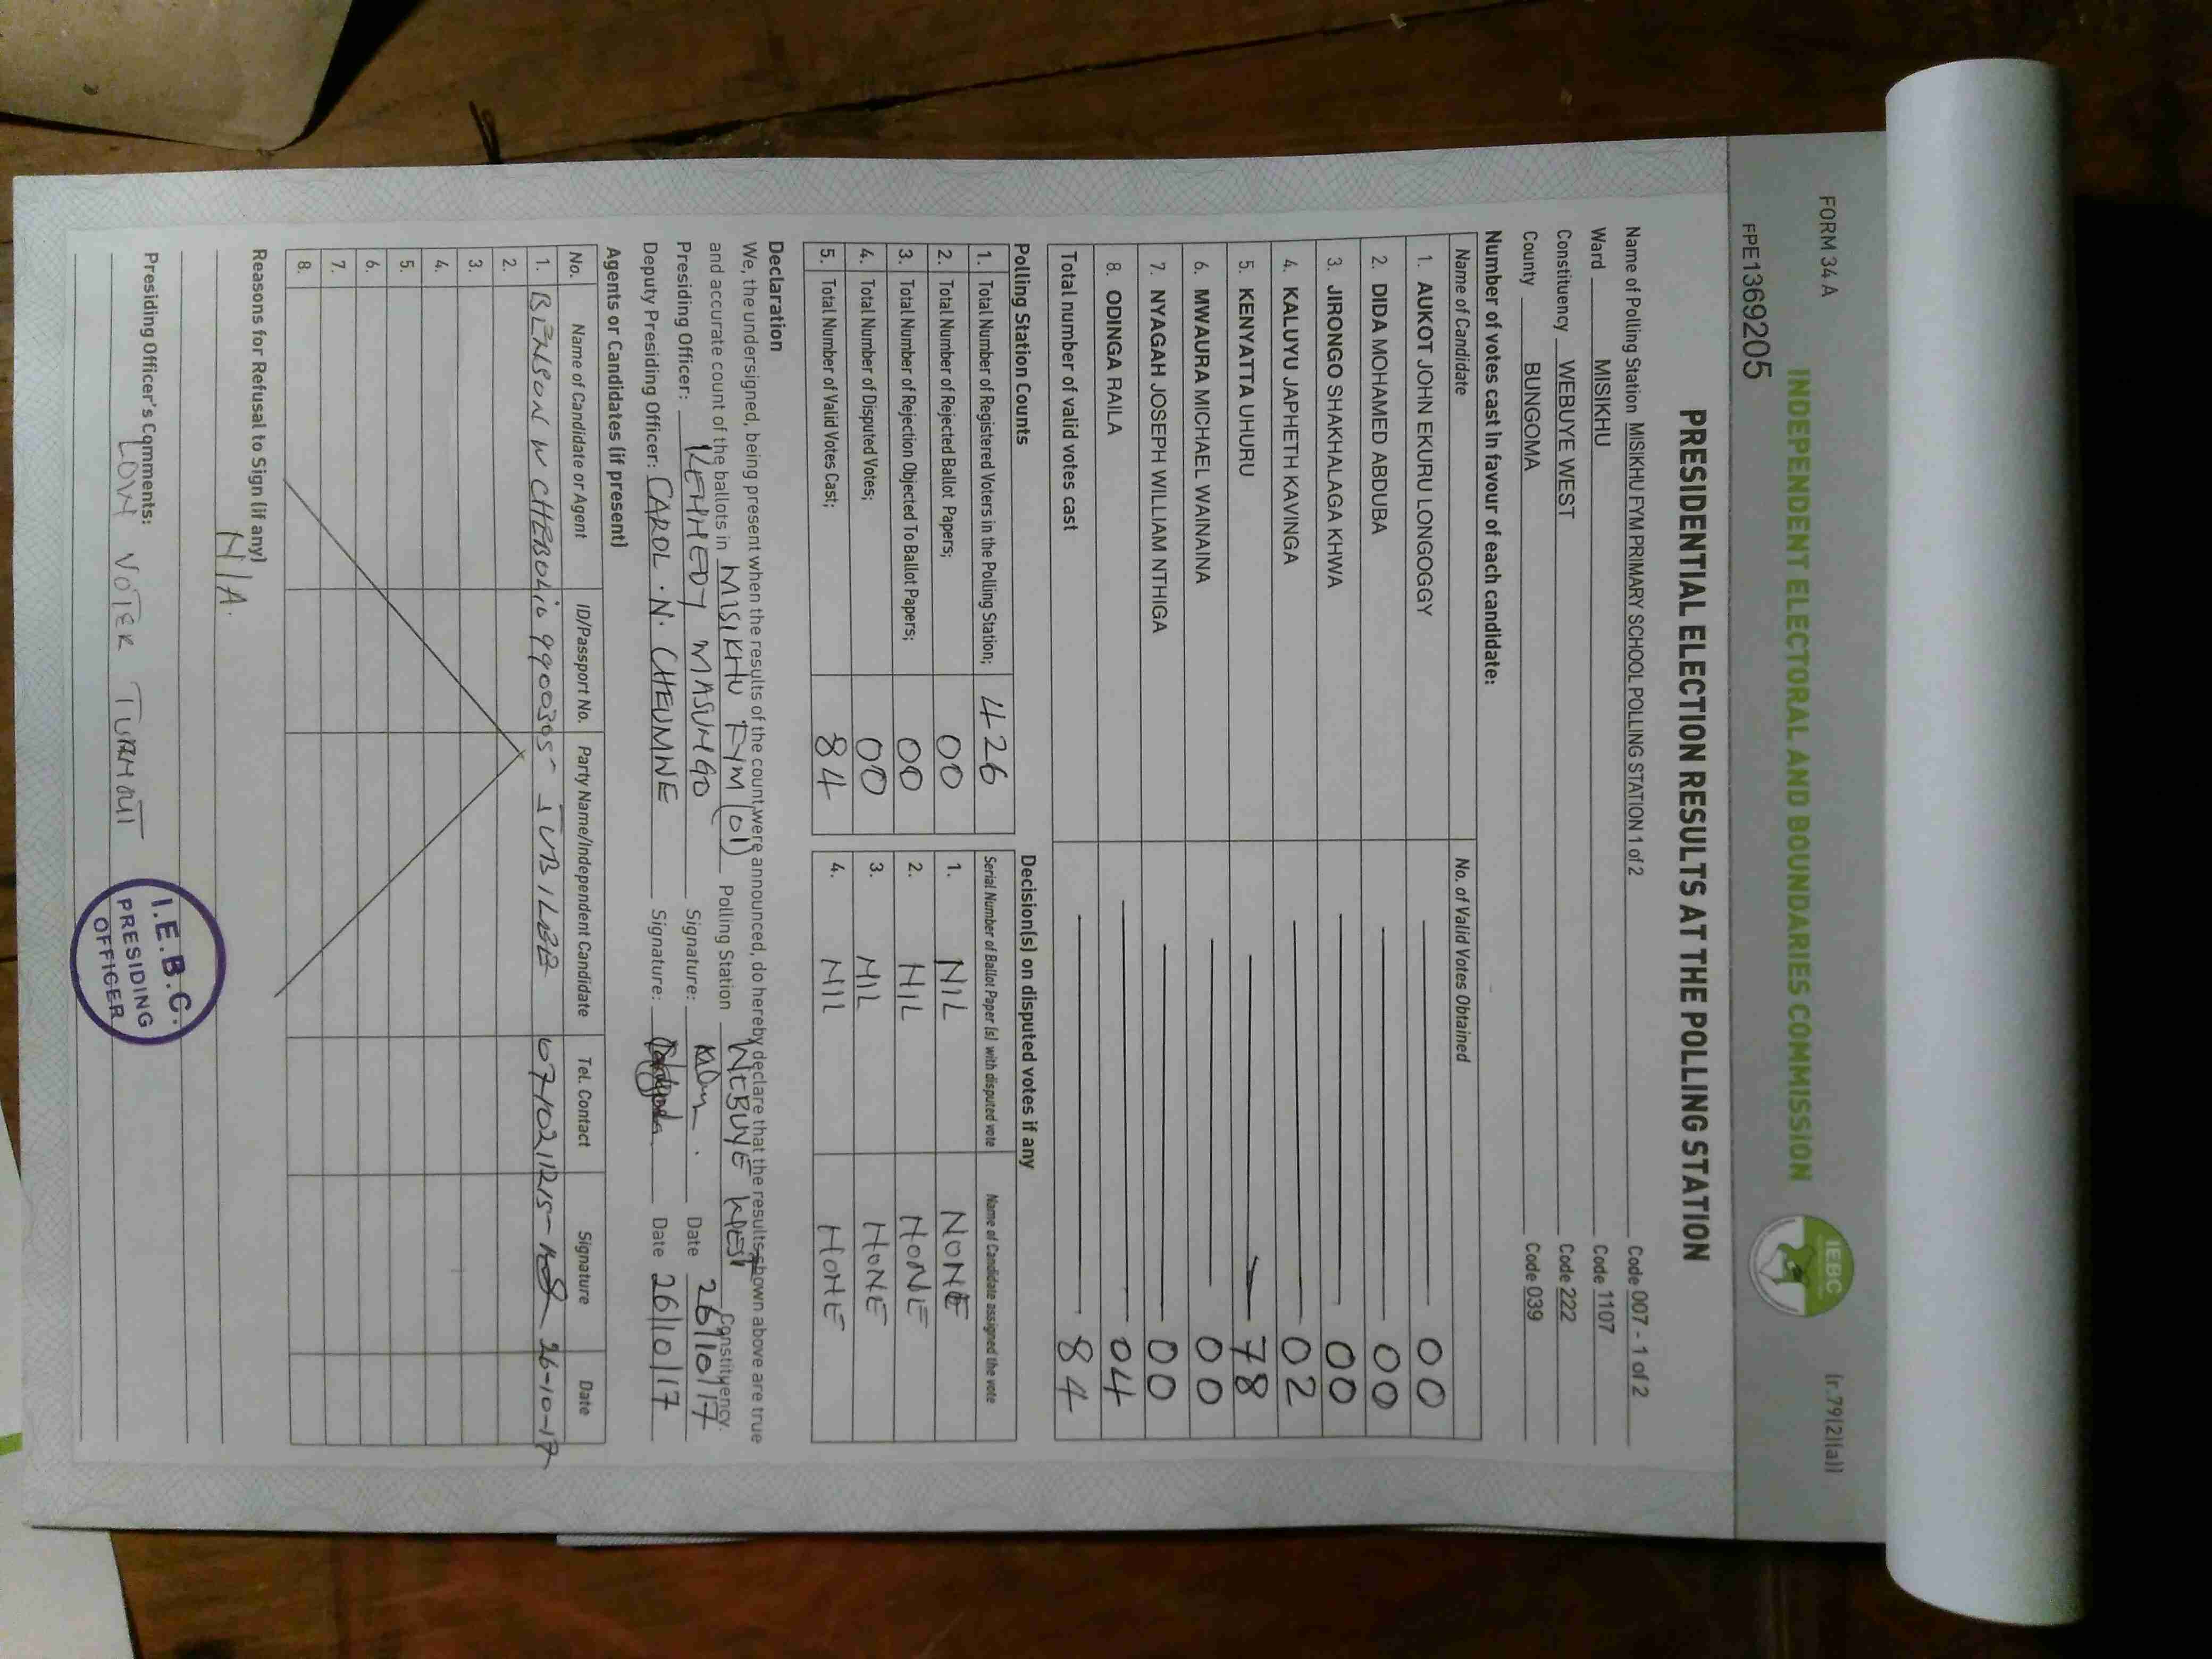 FORM 34 A
(r.79(2)(a))
INDEPENDENT ELECTORAL AND BOUNDARIES COMMISSION
IEBC
FPE1369205
PRESIDENTIAL ELECTION RESULTS AT THE POLLING STATION
Name of Polling Station MISIKHU FYM PRIMARY SCHOOL POLLING STATION 1 of 2 Code 007 - 1 of 2
Ward MISIKHU Code 1107
Constituency WEBUYE WEST Code 222
County BUNGOMA Code 039
Number of votes cast in favour of each candidate:
Name of Candidate No. of Valid Votes Obtained
1. AUKOT JOHN EKURU LONGOGGY 00
2. DIDA MOHAMED ABDUBA 00
3. JIRONGO SHAKHALAGA KHWA 00
4. KALUYU JAPHETH KAVINGA 02
5. KENYATTA UHURU 78
6. MWAURA MICHAEL WAINAINA 00
7. NYAGAH JOSEPH WILLIAM NTHIGA 00
8. ODINGA RAILA 04
Total number of valid votes cast 84
Polling Station Counts
1. Total Number of Registered Voters in the Polling Station; 426
2. Total Number of Rejected Ballot Papers; 00
3. Total Number of Rejection Objected To Ballot Papers; 00
4. Total Number of Disputed Votes; 00
5. Total Number of Valid Votes Cast; 84
Decision(s) on disputed votes if any
Serial Number of Ballot Paper (s) with disputed vote Name of Candidate assigned the vote
1. NIL NONE
2. NIL NONE
3. NIL NONE
4. NIL NONE
Declaration
We, the undersigned, being present when the results of the count were announced, do hereby declare that the results shown above are true
and accurate count of the ballots in MISIKHU FYM (01) Polling Station WEBUYE WEST Constituency.
Presiding Officer: KENNEDY MASUNGO Signature: Date 26/10/17
Deputy Presiding Officer: CAROL . N. CHEUMNE Signature: Date 26/10/17
Agents or Candidates (if present)
No. Name of Candidate or Agent ID/Passport No. Party Name/Independent Candidate Tel. Contact Signature Date
1. BENSON W 9900305 JUBILEE 0710211215 26-10-17
2.
3.
4.
5.
6.
7.
8.
Reasons for Refusal to Sign (if any)
N/A.
Presiding Officer's Comments:
LOW VOTER TURNOUT
I.E.B.C.
PRESIDING
OFFICER